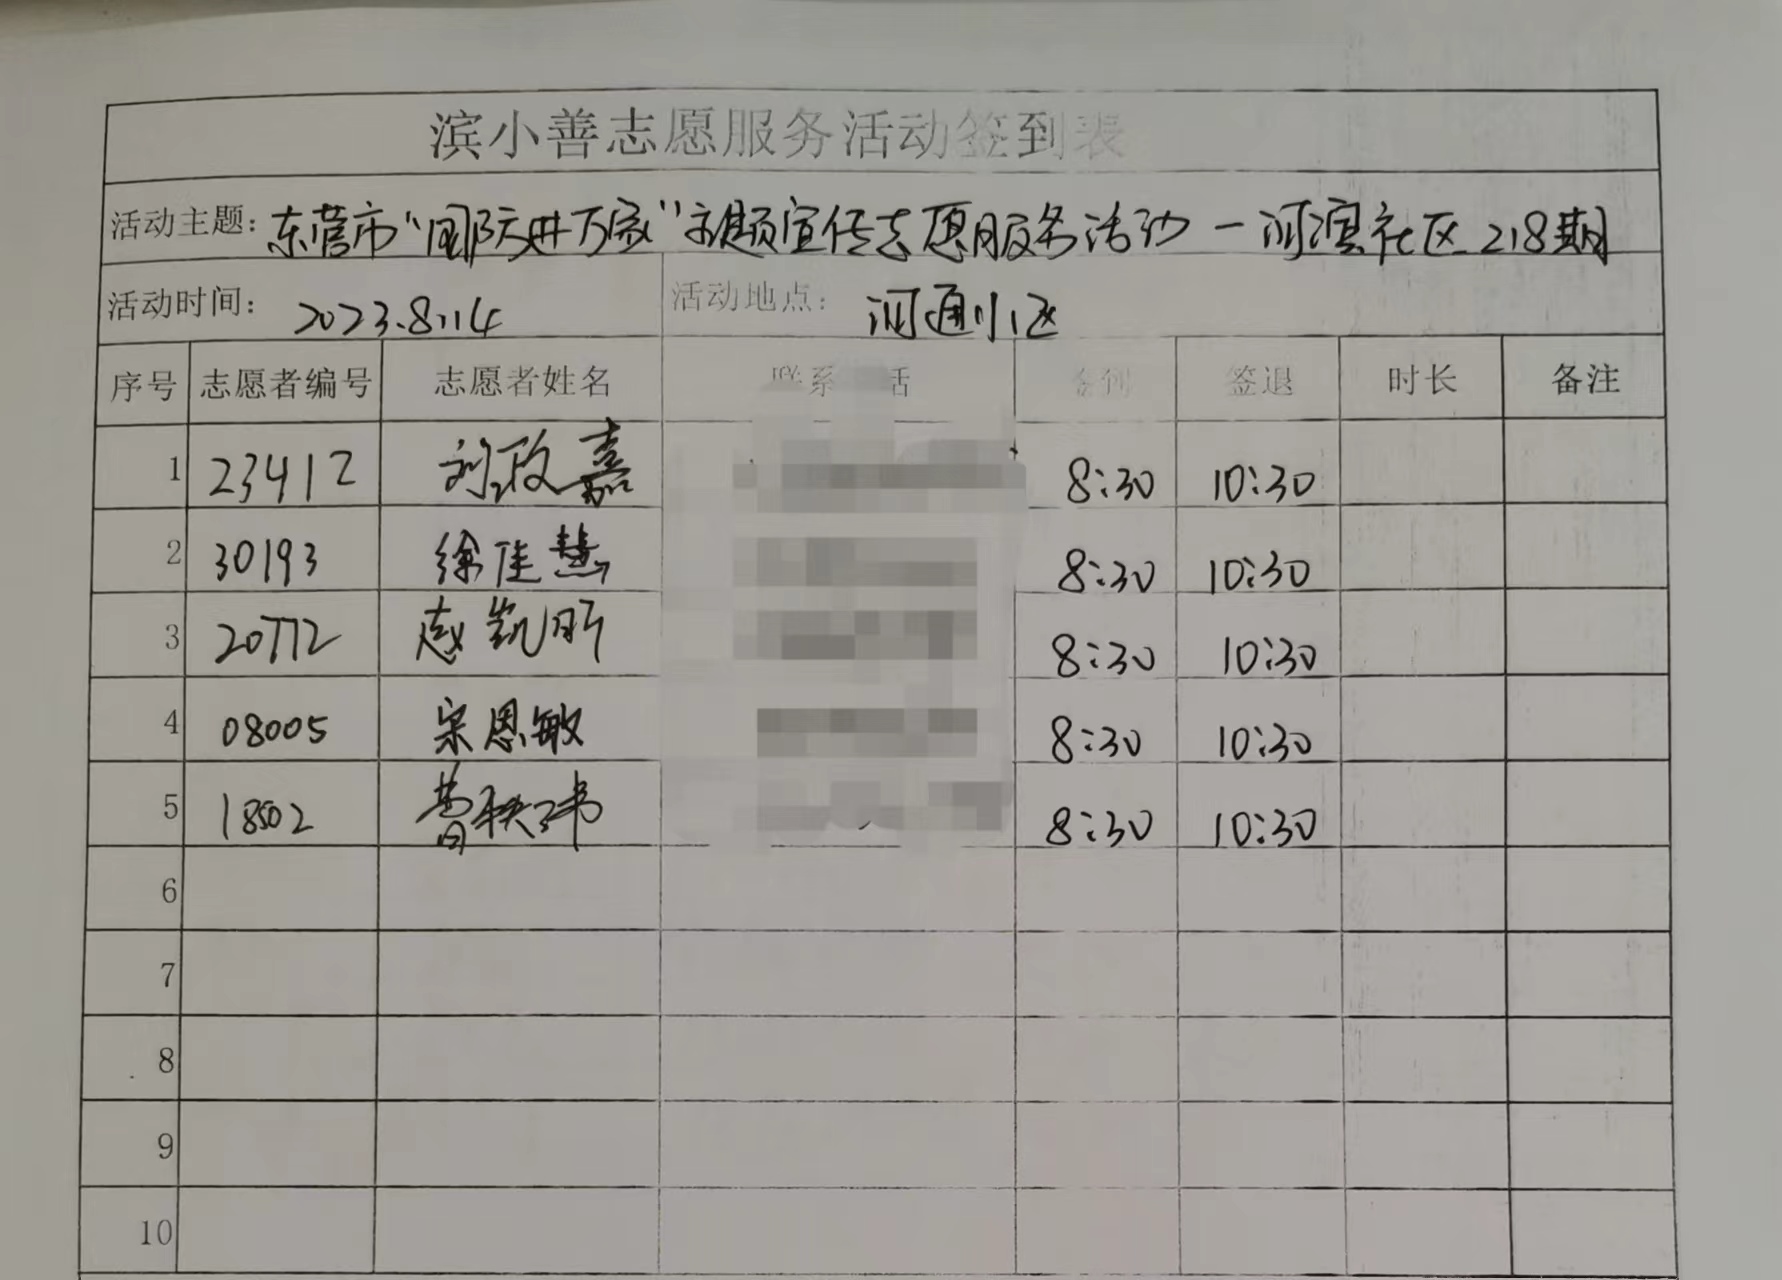 滨小善志愿服务活动签到表
活动主题：东营市“国防进万家”主题宣传志愿服务活动－河滨社区218期
活动时间： 2023.8.14 活动地点： 河通小区
序号 志愿者编号 志愿者姓名 联系 话 签到 签退 时长 备注
1 23412 刘政嘉 8:30 10:30
2 30193 徐佳慧 8:30 10:30
3 20772 凯昕 8:30 10:30
4 08005 宋恩敏 8:30 10:30
5 18502 8:30 10:30
6
7
8
9
10